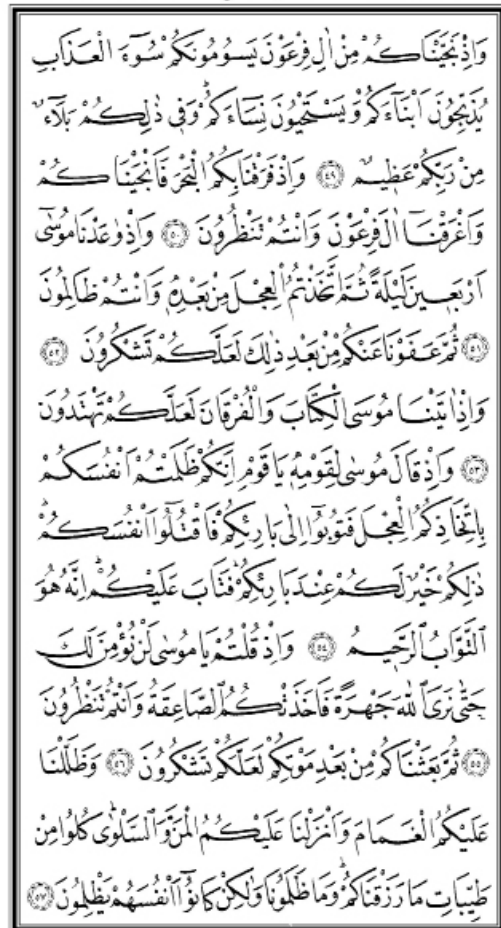 وَاِذْ نَجَّيْنَاكُمْ مِنْ اٰلِ فِرْعَوْنَ يَسُومُونَكُمْ سُٓوءَ الْعَذَابِ
يُذَبِّحُونَ اَبْنَٓاءَكُمْ وَيَسْتَحْيُونَ نِسَٓاءَكُمْۜ وَف۪ي ذٰلِكُمْ بَلَٓاءٌ
مِنْ رَبِّكُمْ عَظ۪يمٌ ﴿٤٩﴾ وَاِذْ فَرَقْنَا بِكُمُ الْبَحْرَ فَاَنْجَيْنَاكُمْ
وَاَغْرَقْنَٓا اٰلَ فِرْعَوْنَ وَاَنْتُمْ تَنْظُرُونَ ﴿٥٠﴾ وَاِذْ وٰعَدْنَا مُوسٰٓى
اَرْبَع۪ينَ لَيْلَةً ثُمَّ اتَّخَذْتُمُ الْعِجْلَ مِنْ بَعْدِه۪ وَاَنْتُمْ ظَالِمُونَ
﴿٥١﴾ ثُمَّ عَفَوْنَا عَنْكُمْ مِنْ بَعْدِ ذٰلِكَ لَعَلَّكُمْ تَشْكُرُونَ ﴿٥٢﴾
وَاِذْ اٰتَيْنَا مُوسَى الْكِتَابَ وَالْفُرْقَانَ لَعَلَّكُمْ تَهْتَدُونَ
﴿٥٣﴾ وَاِذْ قَالَ مُوسٰى لِقَوْمِه۪ يَا قَوْمِ اِنَّكُمْ ظَلَمْتُمْ اَنْفُسَكُمْ
بِاتِّخَاذِكُمُ الْعِجْلَ فَتُوبُٓوا اِلٰى بَارِئِكُمْ فَاقْتُلُٓوا اَنْفُسَكُمْۜ
ذٰلِكُمْ خَيْرٌ لَكُمْ عِنْدَ بَارِئِكُمْۜ فَتَابَ عَلَيْكُمْۜ اِنَّهُ هُوَ
التَّوَّابُ الرَّح۪يمُ ﴿٥٤﴾ وَاِذْ قُلْتُمْ يَا مُوسٰى لَنْ نُؤْمِنَ لَكَ
حَتّٰى نَرَى اللّٰهَ جَهْرَةً فَاَخَذَتْكُمُ الصَّاعِقَةُ وَاَنْتُمْ تَنْظُرُونَ
﴿٥٥﴾ ثُمَّ بَعَثْنَاكُمْ مِنْ بَعْدِ مَوْتِكُمْ لَعَلَّكُمْ تَشْكُرُونَ ﴿٥٦﴾ وَظَلَّلْنَا
عَلَيْكُمُ الْغَمَامَ وَاَنْزَلْنَا عَلَيْكُمُ الْمَنَّ وَالسَّلْوٰىۜ كُلُوا مِنْ
طَيِّبَاتِ مَا رَزَقْنَاكُمْۜ وَمَا ظَلَمُونَا وَلٰكِنْ كَانُٓوا اَنْفُسَهُمْ يَظْلِمُونَ ﴿٥٧﴾